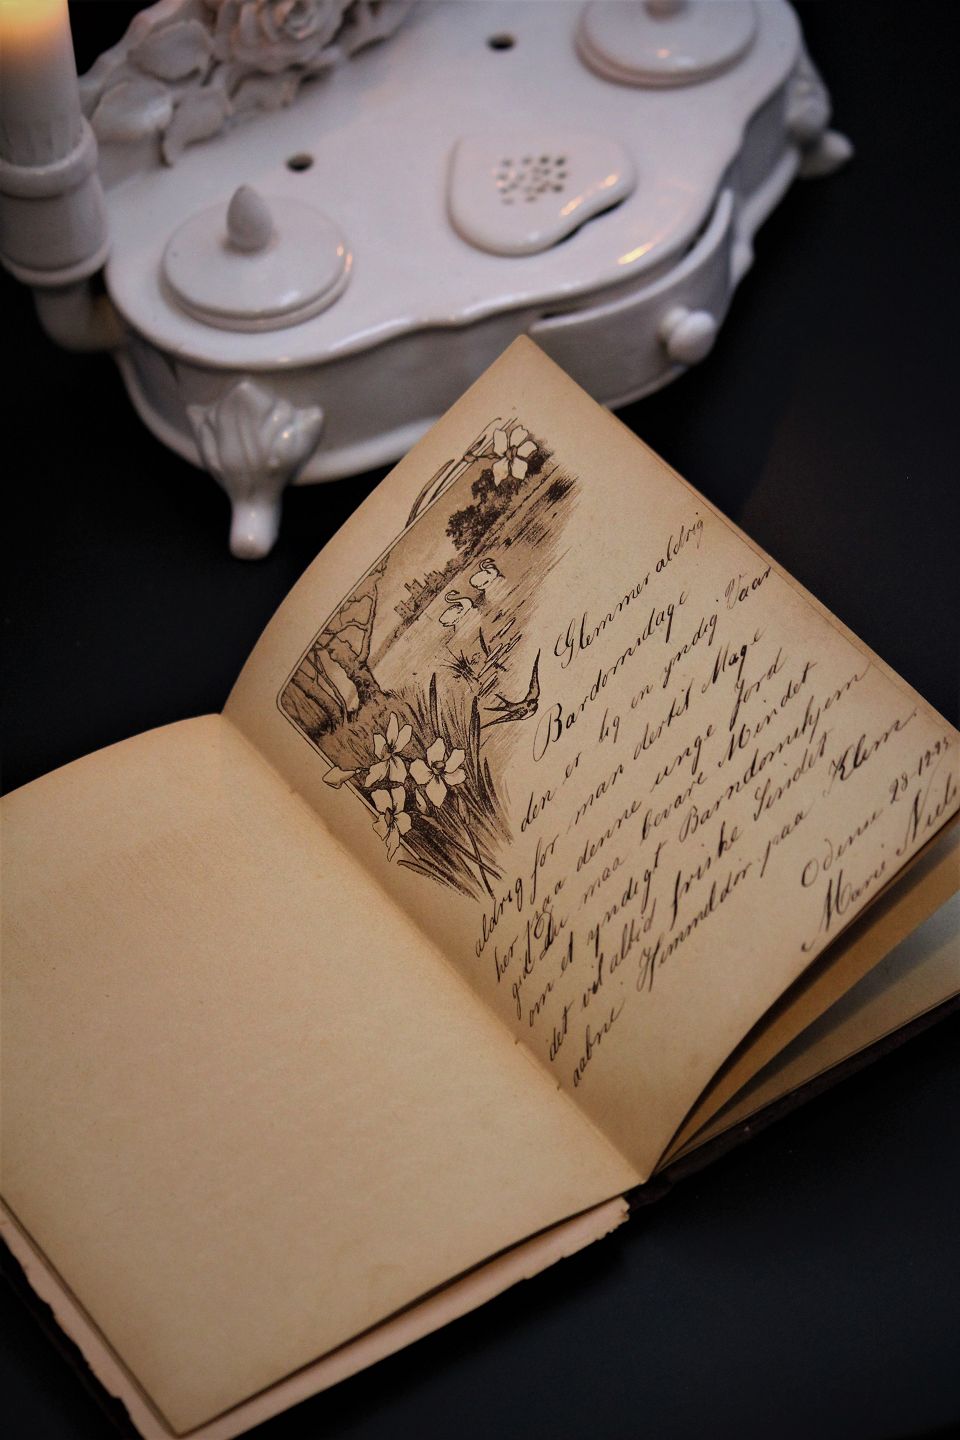 Glemmer aldrig
Bardomsdage
den er lig en yndig Vaar
aldrig før man dertil Mage
her paa denne unge Jord
gid Du maa bevare Mindet
om et yndigt Barndomshjem
det vil altid friske Sindet
aabne Himmeldør paa Klem.
Odense 28-12 93
Marie Niels